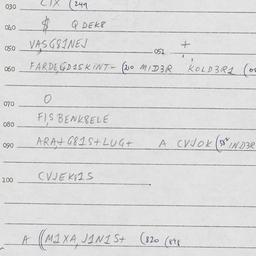 030 CIX (249
040 $ Q DEK8
050 VASG81NEJ 051 +
060 FARDEGD1SKINT- (210 MID3R KOLD3R1
070 O
080 F1S BENK8ELE
090 ARA+ G81S+LUG+ A CVJOK IND3R
100 CVJEK41S
A ((M1XA, J1N1S+ (820